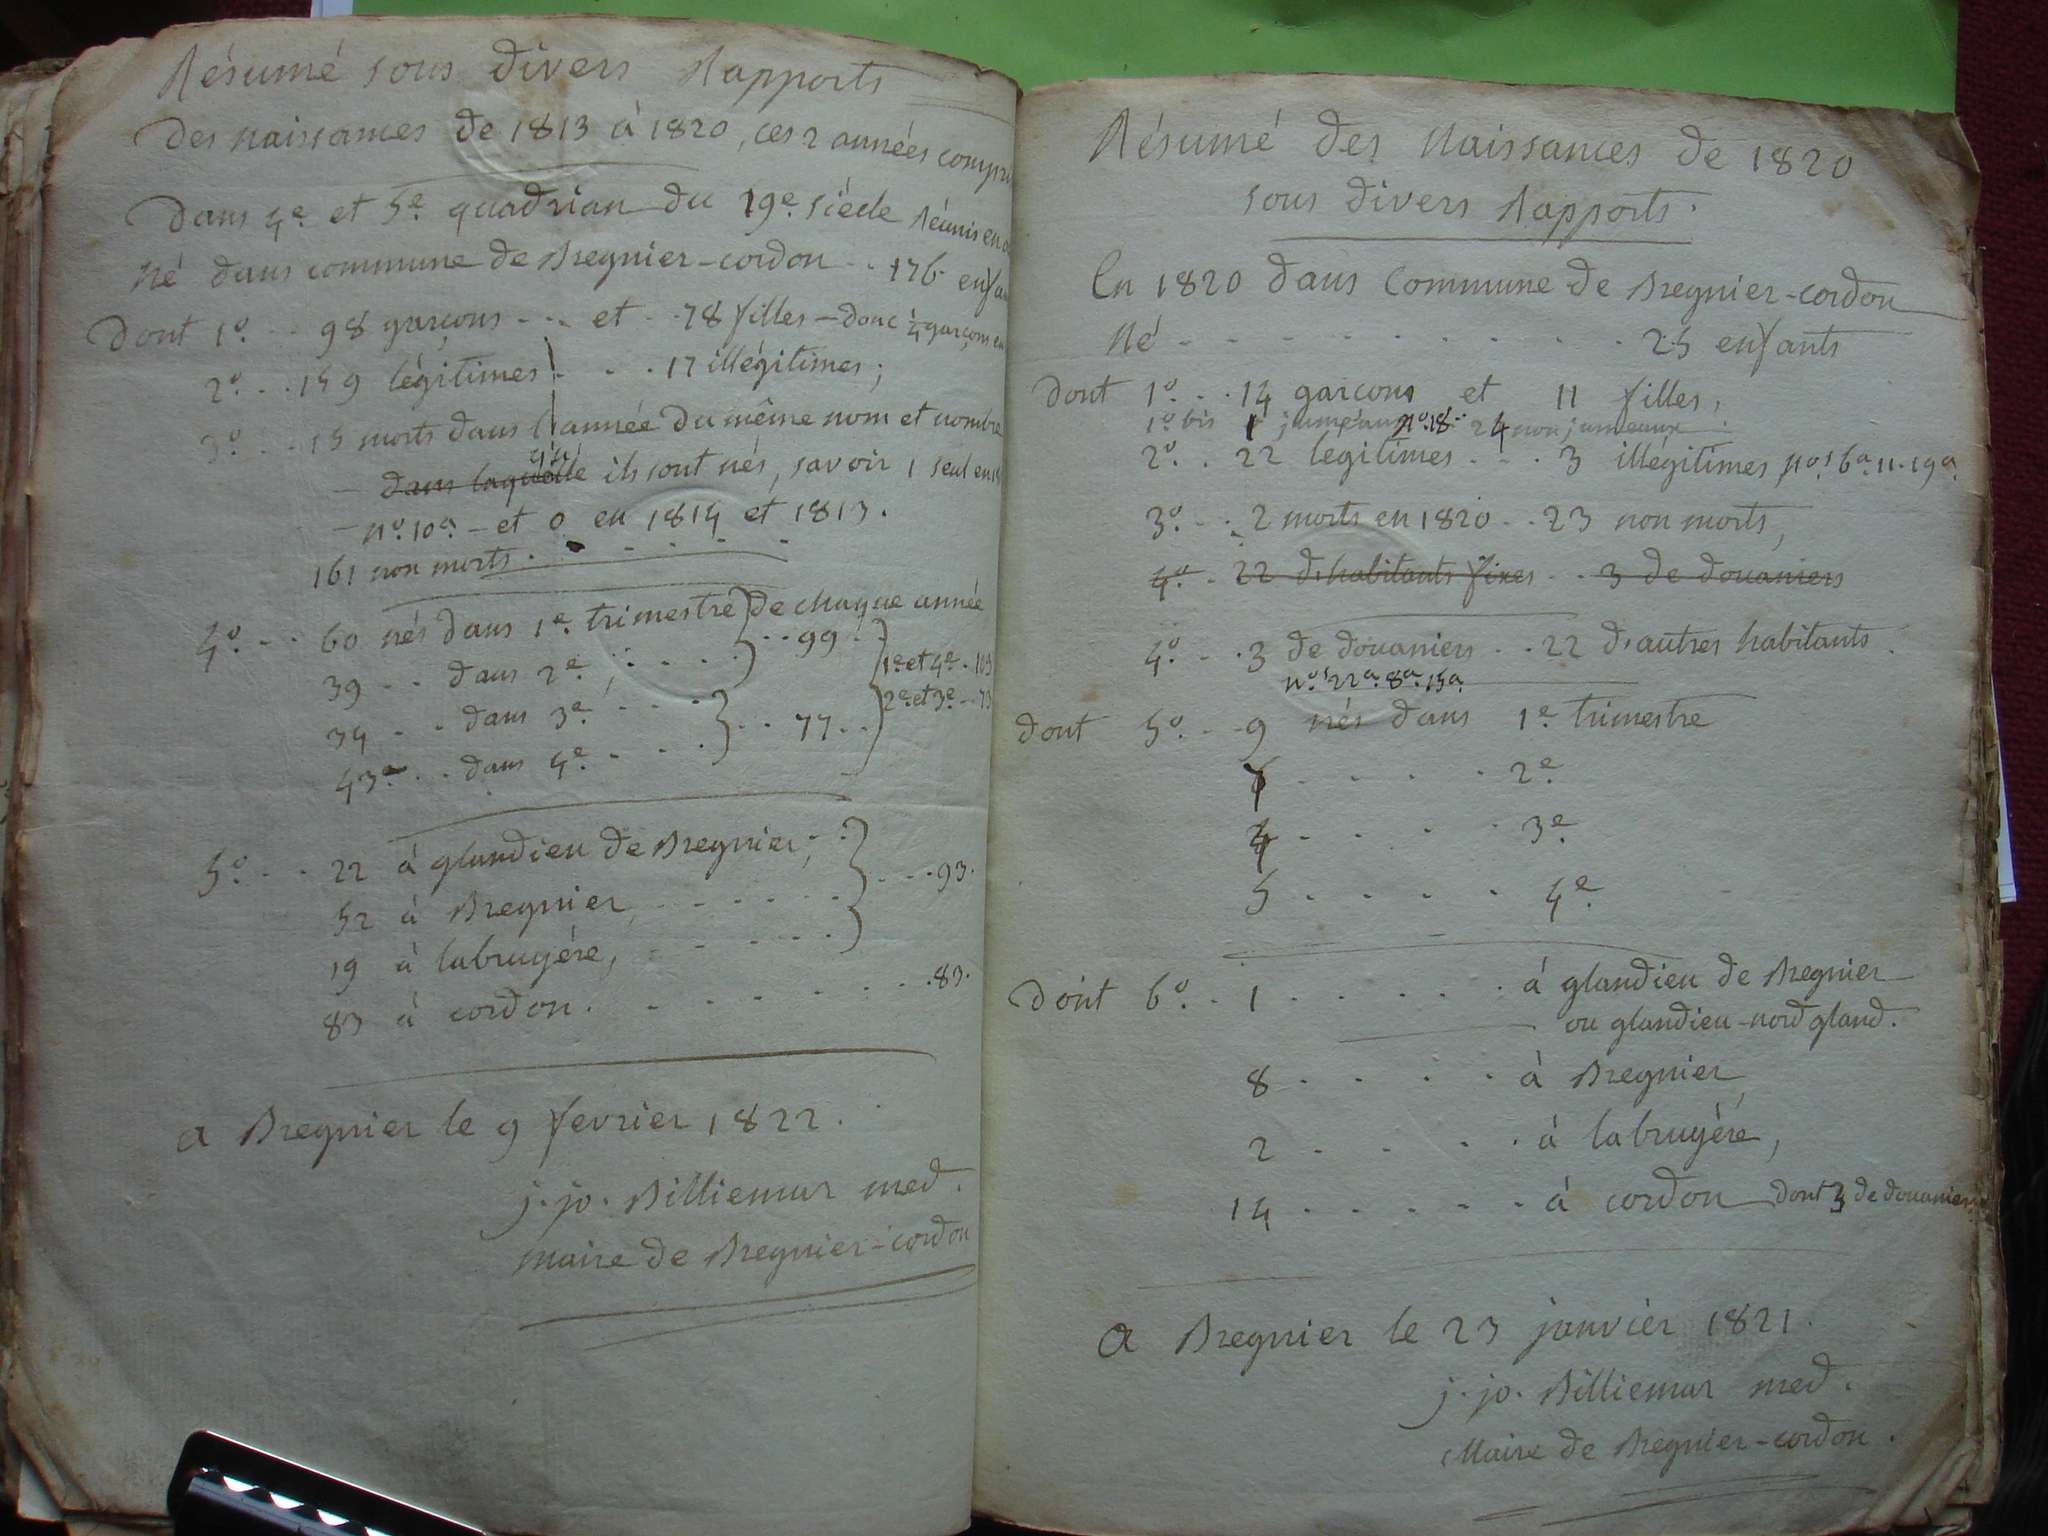 Résumé sous divers Rapports
des naissances de 1813 à 1820, ces 2 années compri
Dans 4e et 5e quadrian du 19e siécle Réunis en
Né dans commune de Bregnier-cordon .. 176 enfan
Dont 1o .. 98 garçons ... et .. 78 filles — donc ¼ garçons en
2o .. 159 légitimes ... 17 illégitimes;
3o .. 15 morts dans l'année du même nom et nombre
— dans laquelle ils sont nés, savoir 1 seul en
— no. 10a — et 0 en 1814 et 1813.
161 non morts
4o .. 60 nés dans 1e trimestre de chaque année
39 .. dans 2e, .... 99 .. 1e et 4e . 103
34 .. dans 3e .... 2e et 3e .. 73
43 .. dans 4e .... 77 ..
5o .. 22 à glandieu de Bregnier,
52 à Bregnier, ...... 93.
19 à labruyére, .....
83 à cordon. ........ 83.
a Bregnier le 9 fevrier 1822.
j. jo. Billiemar med.
maire de Bregnier-cordon
Résumé des Naissances de 1820
sous divers Rapports.
En 1820 dans Commune de Bregnier-cordon
Né .......... 25 enfants
Dont 1o .. 14 garçons et 11 filles,
1o bis 1 jumeau no. 18 .. 24 non jumeaux
2o .. 22 legitimes ... 3 illégitimes, nos 6a. 11. 19a.
3o .. 2 morts en 1820 .. 23 non morts,
4o . 22 d'habitants fixes .. 3 de douaniers
4o .. 3 de douaniers .. 22 d'autres habitants.
nos 22a. 8a. 15a.
dont 5o .. 9 nés dans 1e trimestre
7 .... 2e
4 .... 3e
5 .... 4e
Dont 6o . 1 ..... à glandieu de Bregnier
ou glandieu-nord gland.
8 .... à Bregnier
2 .... à labruyére,
14 ..... à cordon dont 3 de douaniers
a Bregnier le 23 janvier 1821.
j. jo. Billiemar med.
Maire de Bregnier-cordon.